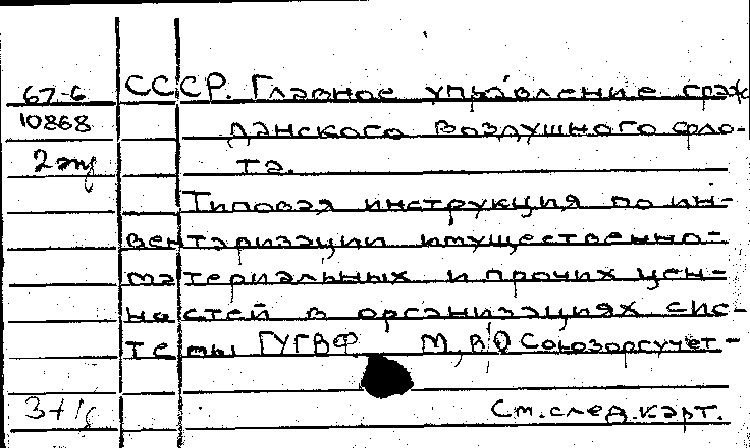 67-6 СССР. Главное управление граж
10868 данского воздушного фло-
2 экз та.
Типовая инструкция по ин-
вентаризации имущественно-
материальных и прочих цен-
ностей в организациях сис-
темы ГУГВФ М, ВО Союзоргучет-
См. след. карт.